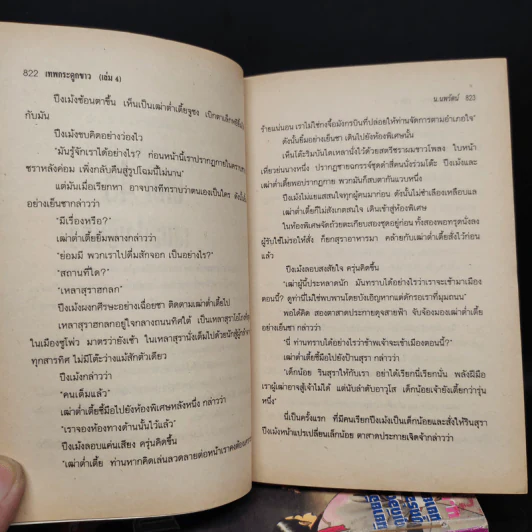 822 เทพกระดูกขาว (เล่ม 4)
ปึงเม้งช้อนตาขึ้น เห็นเป็นเฒ่าต่ำเตี้ยจูซง เบิกตาเล็กหยีจ้อง
กับมัน
ปึงเม้งขบคิดอย่างว่องไว
"มันรู้จักเราได้อย่างไร? ก่อนหน้านี้เราปรากฏกายในคราบ
ชราหลังค่อม เพิ่งกลับคืนสู่รูปโฉมนี้ไม่นาน"
แต่มันเมื่อเรียกหา อาจบางทีทราบว่าตนเองเป็นใคร ดังนั้น
อย่างเย็นชากล่าวว่า
"มีเรื่องหรือ?"
เฒ่าต่ำเตี้ยยิ้มพลางกล่าวว่า
"ย่อมมี พวกเราไปดื่มสักจอก เป็นอย่างไร?"
"สถานที่ใด?"
"เหลาสุราฮกลก"
ปึงเม้งผงกศีรษะอย่างเฉื่อยชา ติดตามเฒ่าต่ำเตี้ยไป
เหลาสุราฮกลกอยู่ใจกลางถนนทิศใต้ เป็นเหลาสุรา
ในเมืองซูโฬว มาตรว่ายังเช้า ในเหลาสุรานั่งเต็มไปด้วยนักสู้ผู้กล้าจาก
ทุกสารทิศ ไม่มีโต๊ะว่างแม้สักตัวเดียว
ปึงเม้งกล่าวว่า
"คนเต็มแล้ว"
เฒ่าต่ำเตี้ยชี้มือไปยังห้องพิเศษหลังหนึ่ง กล่าวว่า
"เราจองห้องทางด้านนั้นไว้แล้ว"
ปึงเม้งลอบแค่นเสียง ครุ่นคิดขึ้น
"เฒ่าต่ำเตี้ย ท่านหากคิดเล่นลวดลายต่อหน้าเราคง
น.นพรัตน์ 823
ร้ายแน่นอน เราไม่ใช่กงจื้อมังกรบินที่ปล่อยให้ท่านจัดการตามอำเภอใจ"
ดังนั้นยิ้มอย่างเย็นชา เดินไปยังห้องพิเศษนั้น
เห็นโต๊ะริมบันไดเหลานั่งไว้ด้วยสตรีชราผมขาวโพลง ใบหน้า
เหี่ยวย่นนางหนึ่ง ปรากฏชายฉกรรจ์ชุดดำสี่คนนั่งร่วมโต๊ะ ปึงเม้งและ
เฒ่าต่ำเตี้ยพอปรากฏกาย พวกมันก็สบตากันแวบหนึ่ง
ปึงเม้งไม่แยแสสนใจทุกผู้คนมาก่อน ดังนั้นไม่ชำเลืองเหลือบแล
เฒ่าต่ำเตี้ยก็ไม่สังเกตสนใจ เดินเข้าสู่ห้องพิเศษ
ในห้องพิเศษจัดถ้วยตะเกียบสองชุดอยู่ก่อน ทั้งสองพอทรุดนั่งลง
ผู้รับใช้ไม่รอให้สั่ง ก็ยกสุราอาหารมา คล้ายกับเฒ่าต่ำเตี้ยสั่งไว้ก่อน
แล้ว
ปึงเม้งลอบสงสัยใจ ครุ่นคิดขึ้น
"เฒ่าผู้นี้ประหลาดนัก มันทราบได้อย่างไรว่าเราจะเข้ามาเมือง
ตอนนี้? ดูท่านี่ไม่ใช่พบพานโดยบังเอิญหากแต่ดักรอเราที่มุมถนน"
พอได้คิด สองตาสาดประกายดุจสายฟ้า จับจ้องมองเฒ่าต่ำเตี้ย
อย่างเย็นชา กล่าวว่า
"นี่ ท่านทราบได้อย่างไรว่าข้าพเจ้าจะเข้าเมืองตอนนี้?"
เฒ่าต่ำเตี้ยชี้มือไปยังป้านสุรา กล่าวว่า
"เด็กน้อย รินสุราให้กับเรา อย่าได้เรียกนี่เรียกนั่น พลังฝีมือ
เราผู้เฒ่าอาจสู้เจ้าไม่ได้ แต่นับลำดับอาวุโส เด็กน้อยเจ้ายังเตี้ยกว่ารุ่น
หนึ่ง"
นี่เป็นครั้งแรก ที่มีคนเรียกปึงเม้งเป็นเด็กน้อยและสั่งให้รินสุรา
ปึงเม้งหน้าแปรเปลี่ยนเล็กน้อย ตาสาดประกายเจิดจ้ากล่าวว่า